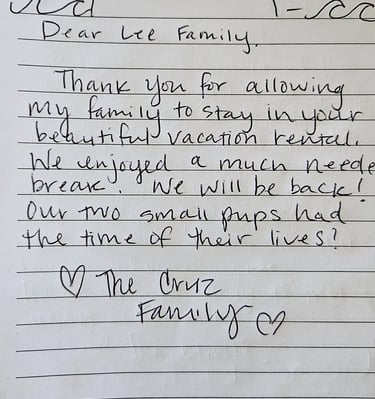 Dear Lee Family,
Thank you for allowing
my family to stay in your
beautiful vacation rental.
We enjoyed a much neede
break. We will be back!
Our two small pups had
the time of their lives!
♡ The Cruz
Family ♡